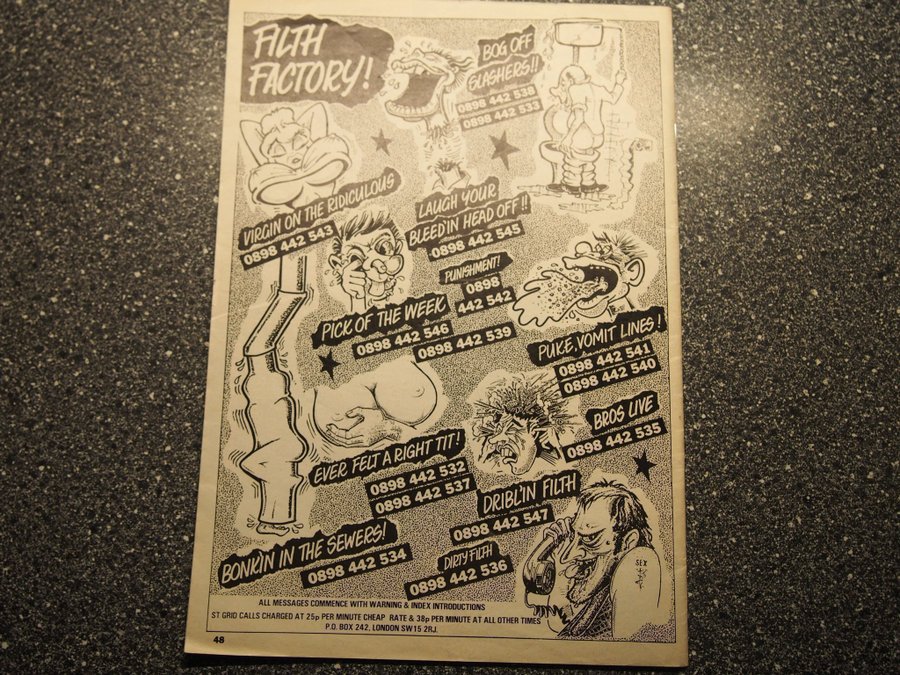 FILTH
FACTORY!
BOG OFF
SLASHERS!!
0898 442 538
0898 442 533
VIRGIN ON THE RIDICULOUS
0898 442 543
LAUGH YOUR
BLEED'IN HEAD OFF!!
0898 442 545
PUNISHMENT!
0898
442 542
PICK OF THE WEEK
0898 442 546
0898 442 539
PUKE, VOMIT LINES!
0898 442 541
0898 442 540
BROS LIVE
0898 442 535
EVER FELT A RIGHT TIT!
0898 442 532
0898 442 537
DRIBL'IN FILTH
0898 442 547
BONKIN IN THE SEWERS!
0898 442 534
DIRTY FILTH
0898 442 536
SEX
ALL MESSAGES COMMENCE WITH WARNING & INDEX INTRODUCTIONS
ST GRID CALLS CHARGED AT 25p PER MINUTE CHEAP RATE & 38p PER MINUTE AT ALL OTHER TIMES
P.O. BOX 242, LONDON SW15 2RJ.
48